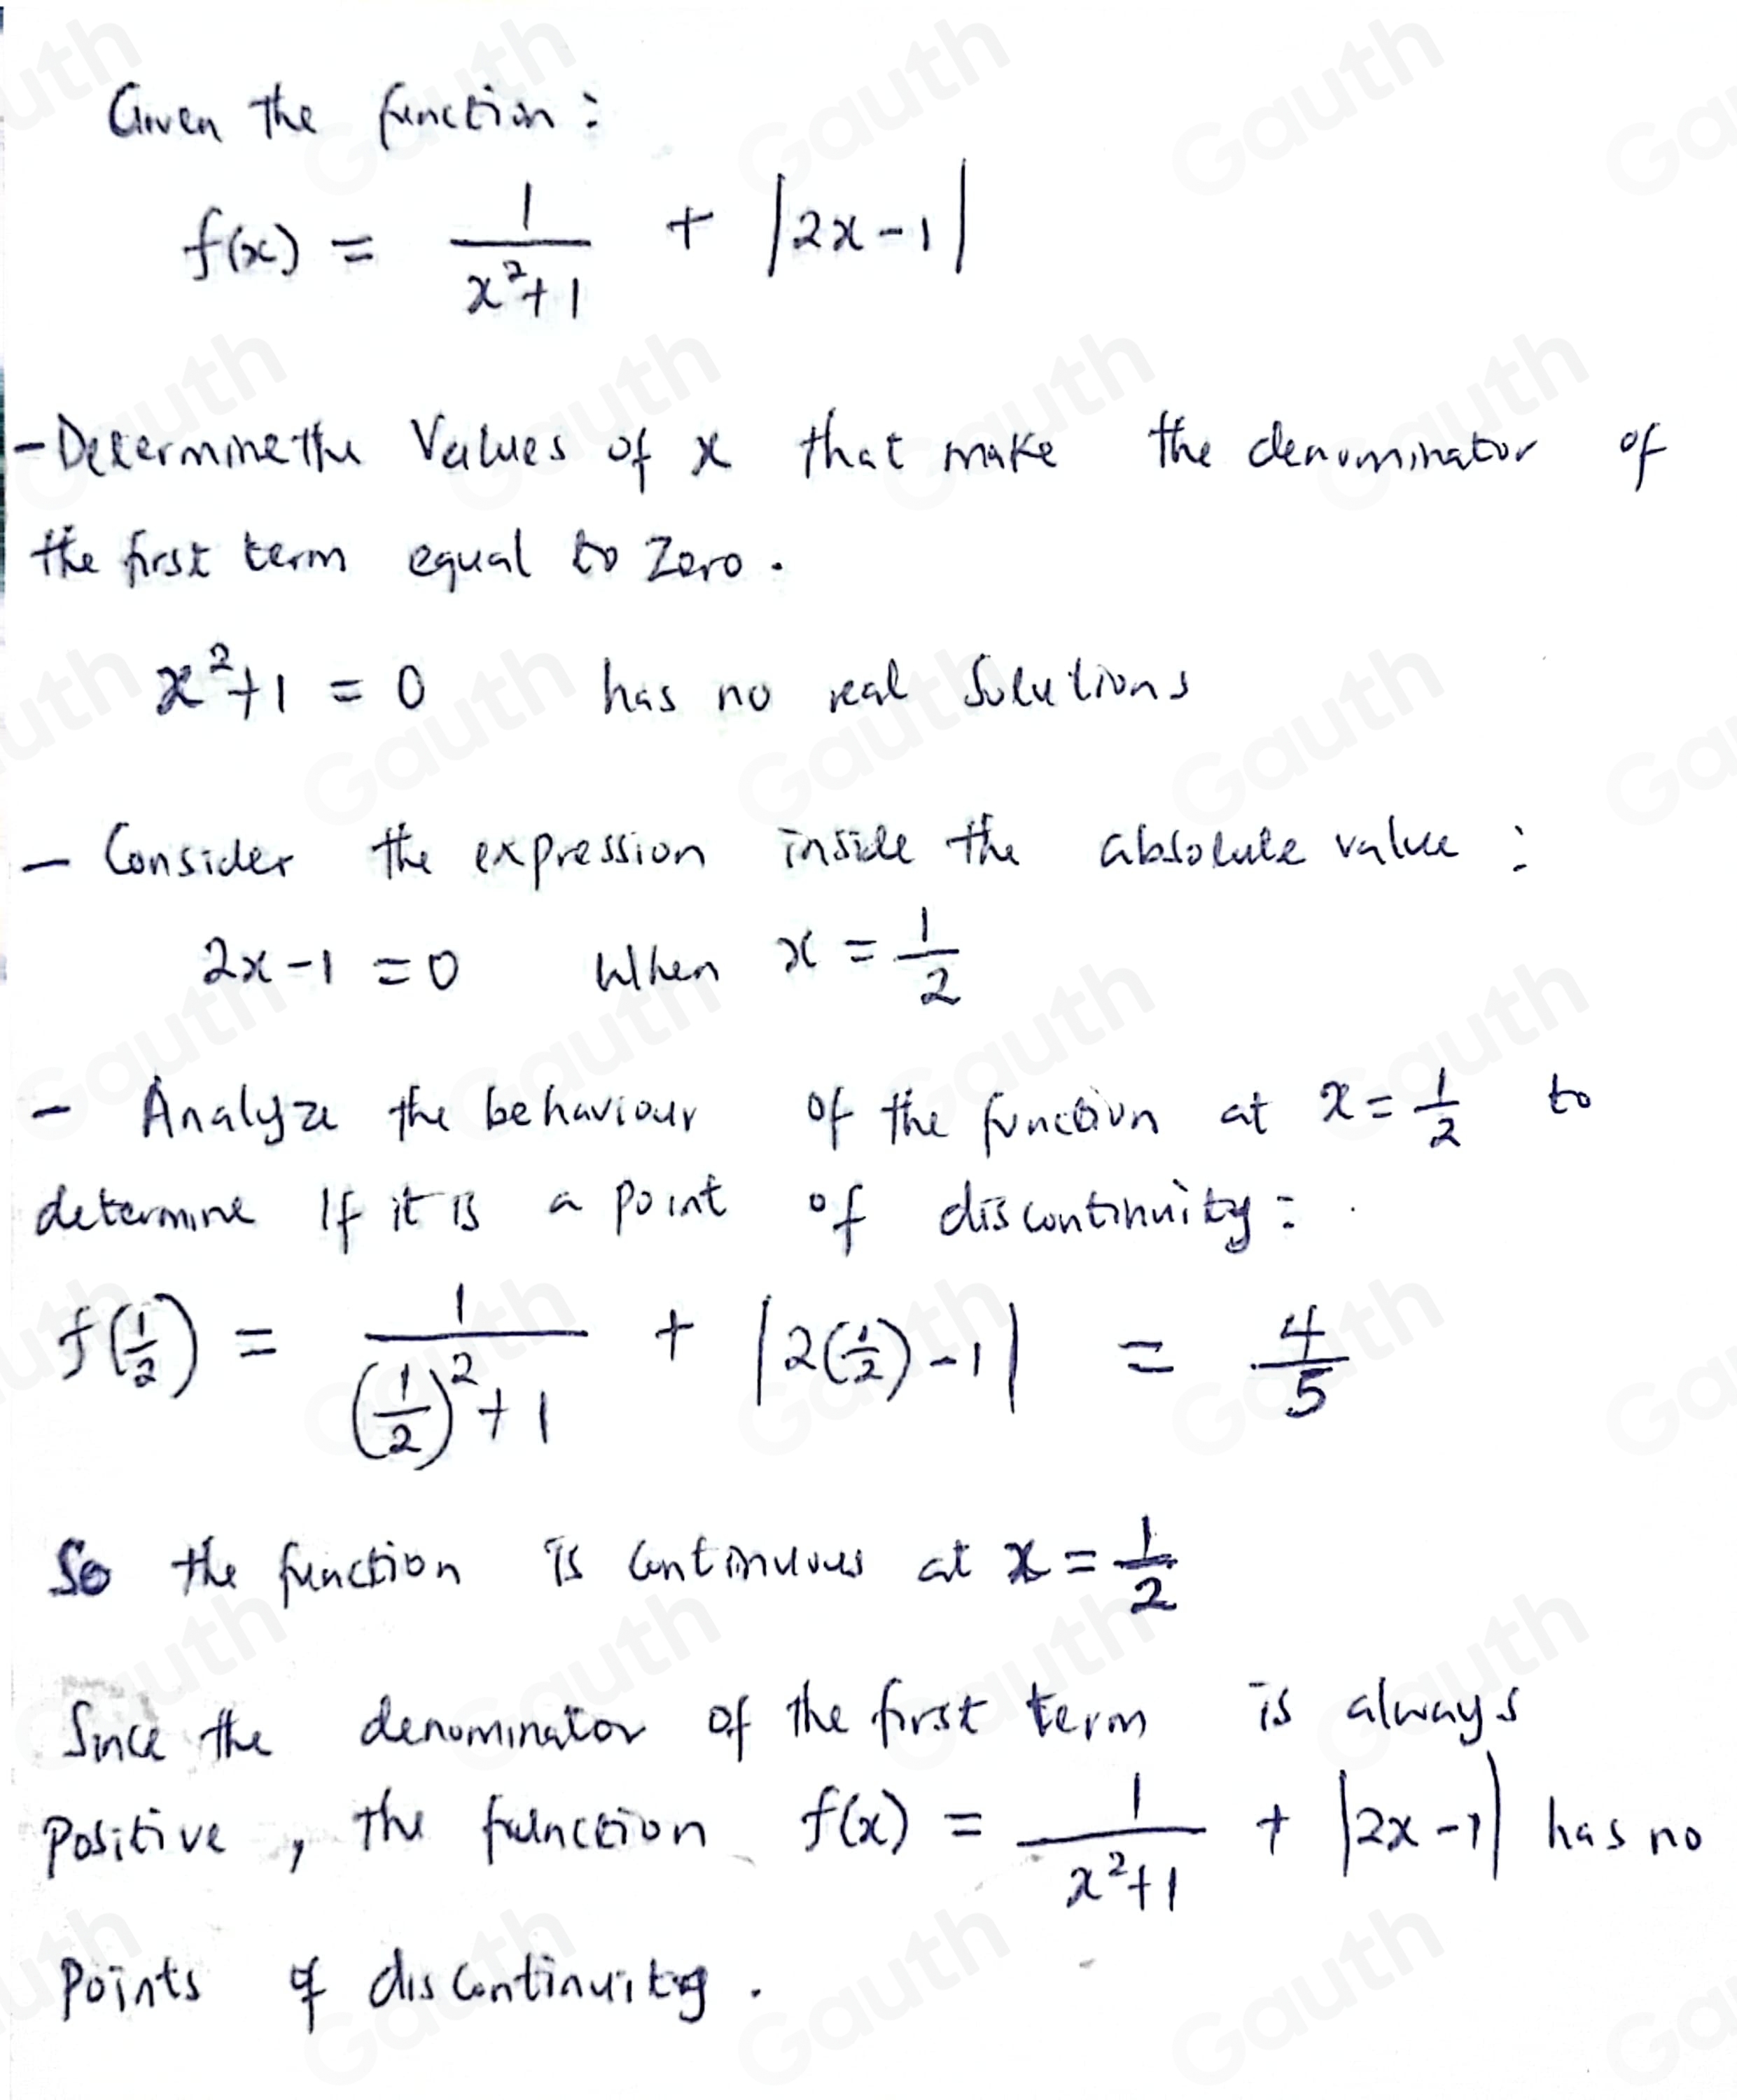 Given the function:
f(x) = 1/(x²+1) + |2x-1|
- Determine the Values of x that make the denominator of
the first term equal to Zero.
x²+1 = 0 has no real Solutions
- Consider the expression inside the absolute value:
2x-1 = 0 When x = 1/2
- Analyze the behaviour of the function at x = 1/2 to
determine If it is a point of discontinuity:
f(1/2) = 1/((1/2)²+1) + |2(1/2)-1| = 4/5
So the function is Continuous at x = 1/2
Since the denominator of the first term is always
Positive, the function f(x) = 1/(x²+1) + |2x-1| has no
Points of discontinuity.